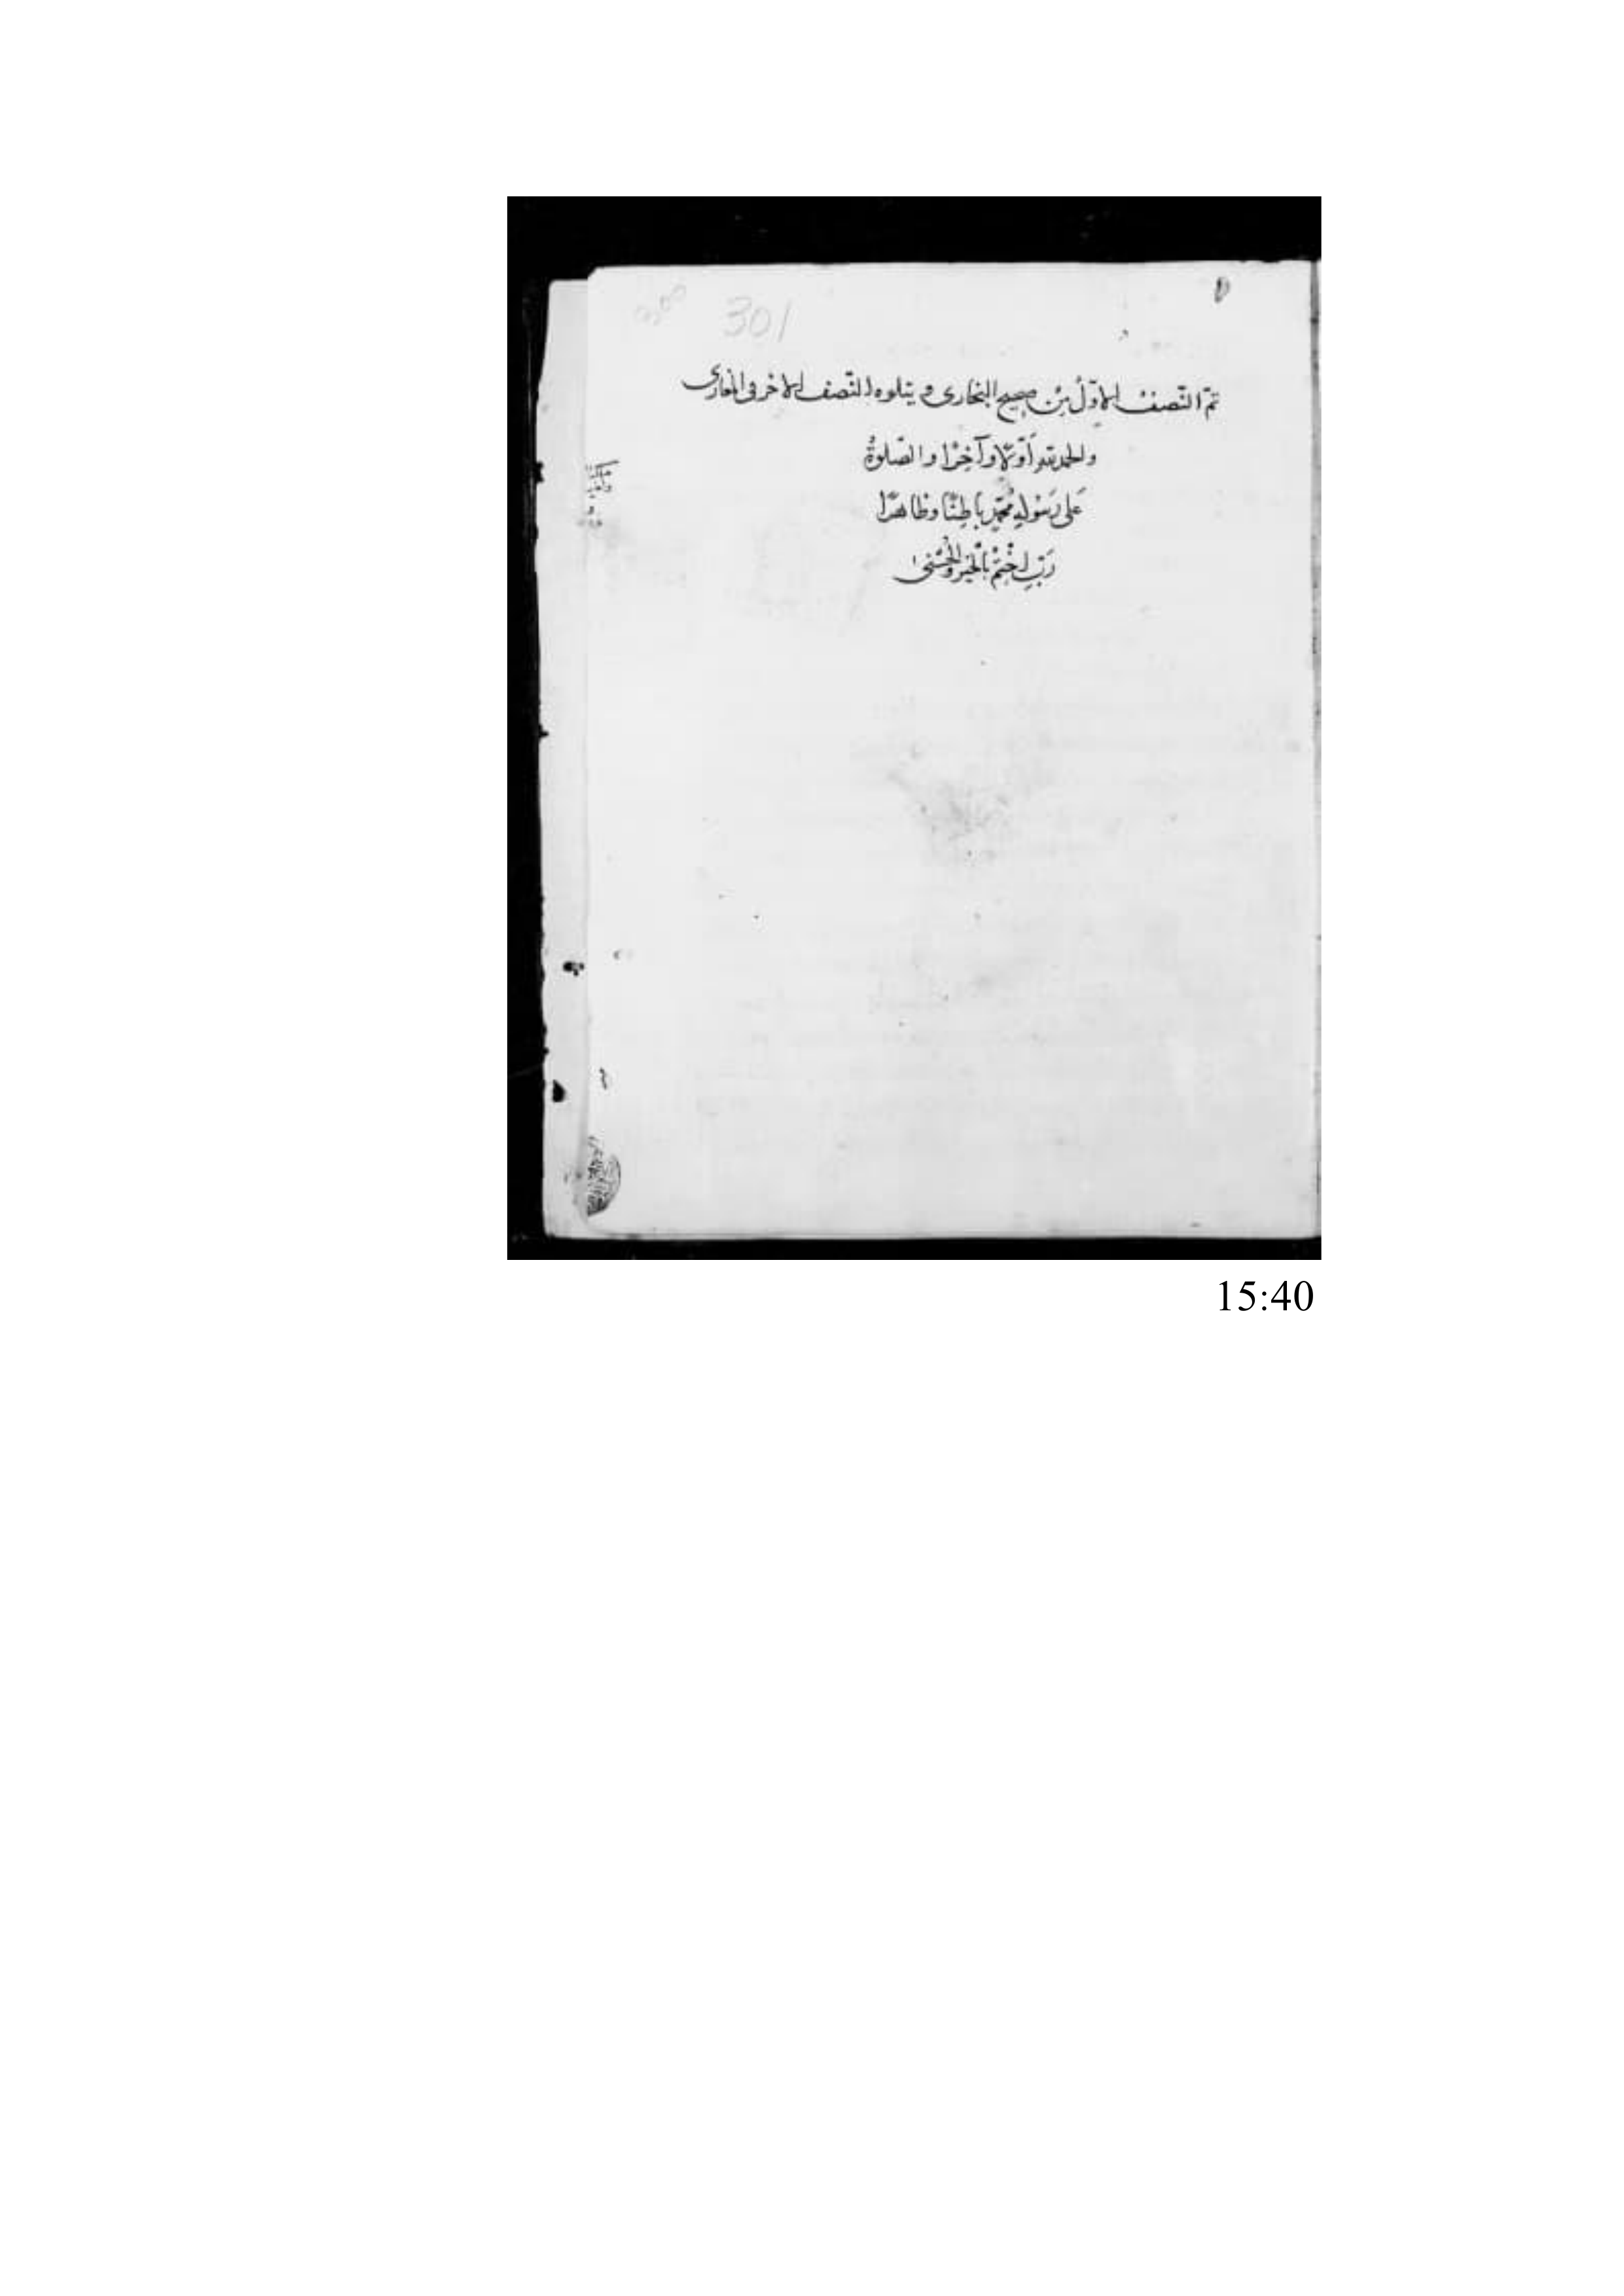 300
301
تمّ النّصفُ الاوّلُ مِنْ صحيح البخارى و يتلوه النّصف الاخر فى المغازى
والحمد لله أوّلًا وآخِرًا والصّلوةُ
عَلى رَسُوْلِهِ مُحمّدٍ باطِنًا وظاهرًا
رَبِّ اخْتِمْ بِالْخَيْرِ وَالْحُسْنىٰ
15:40